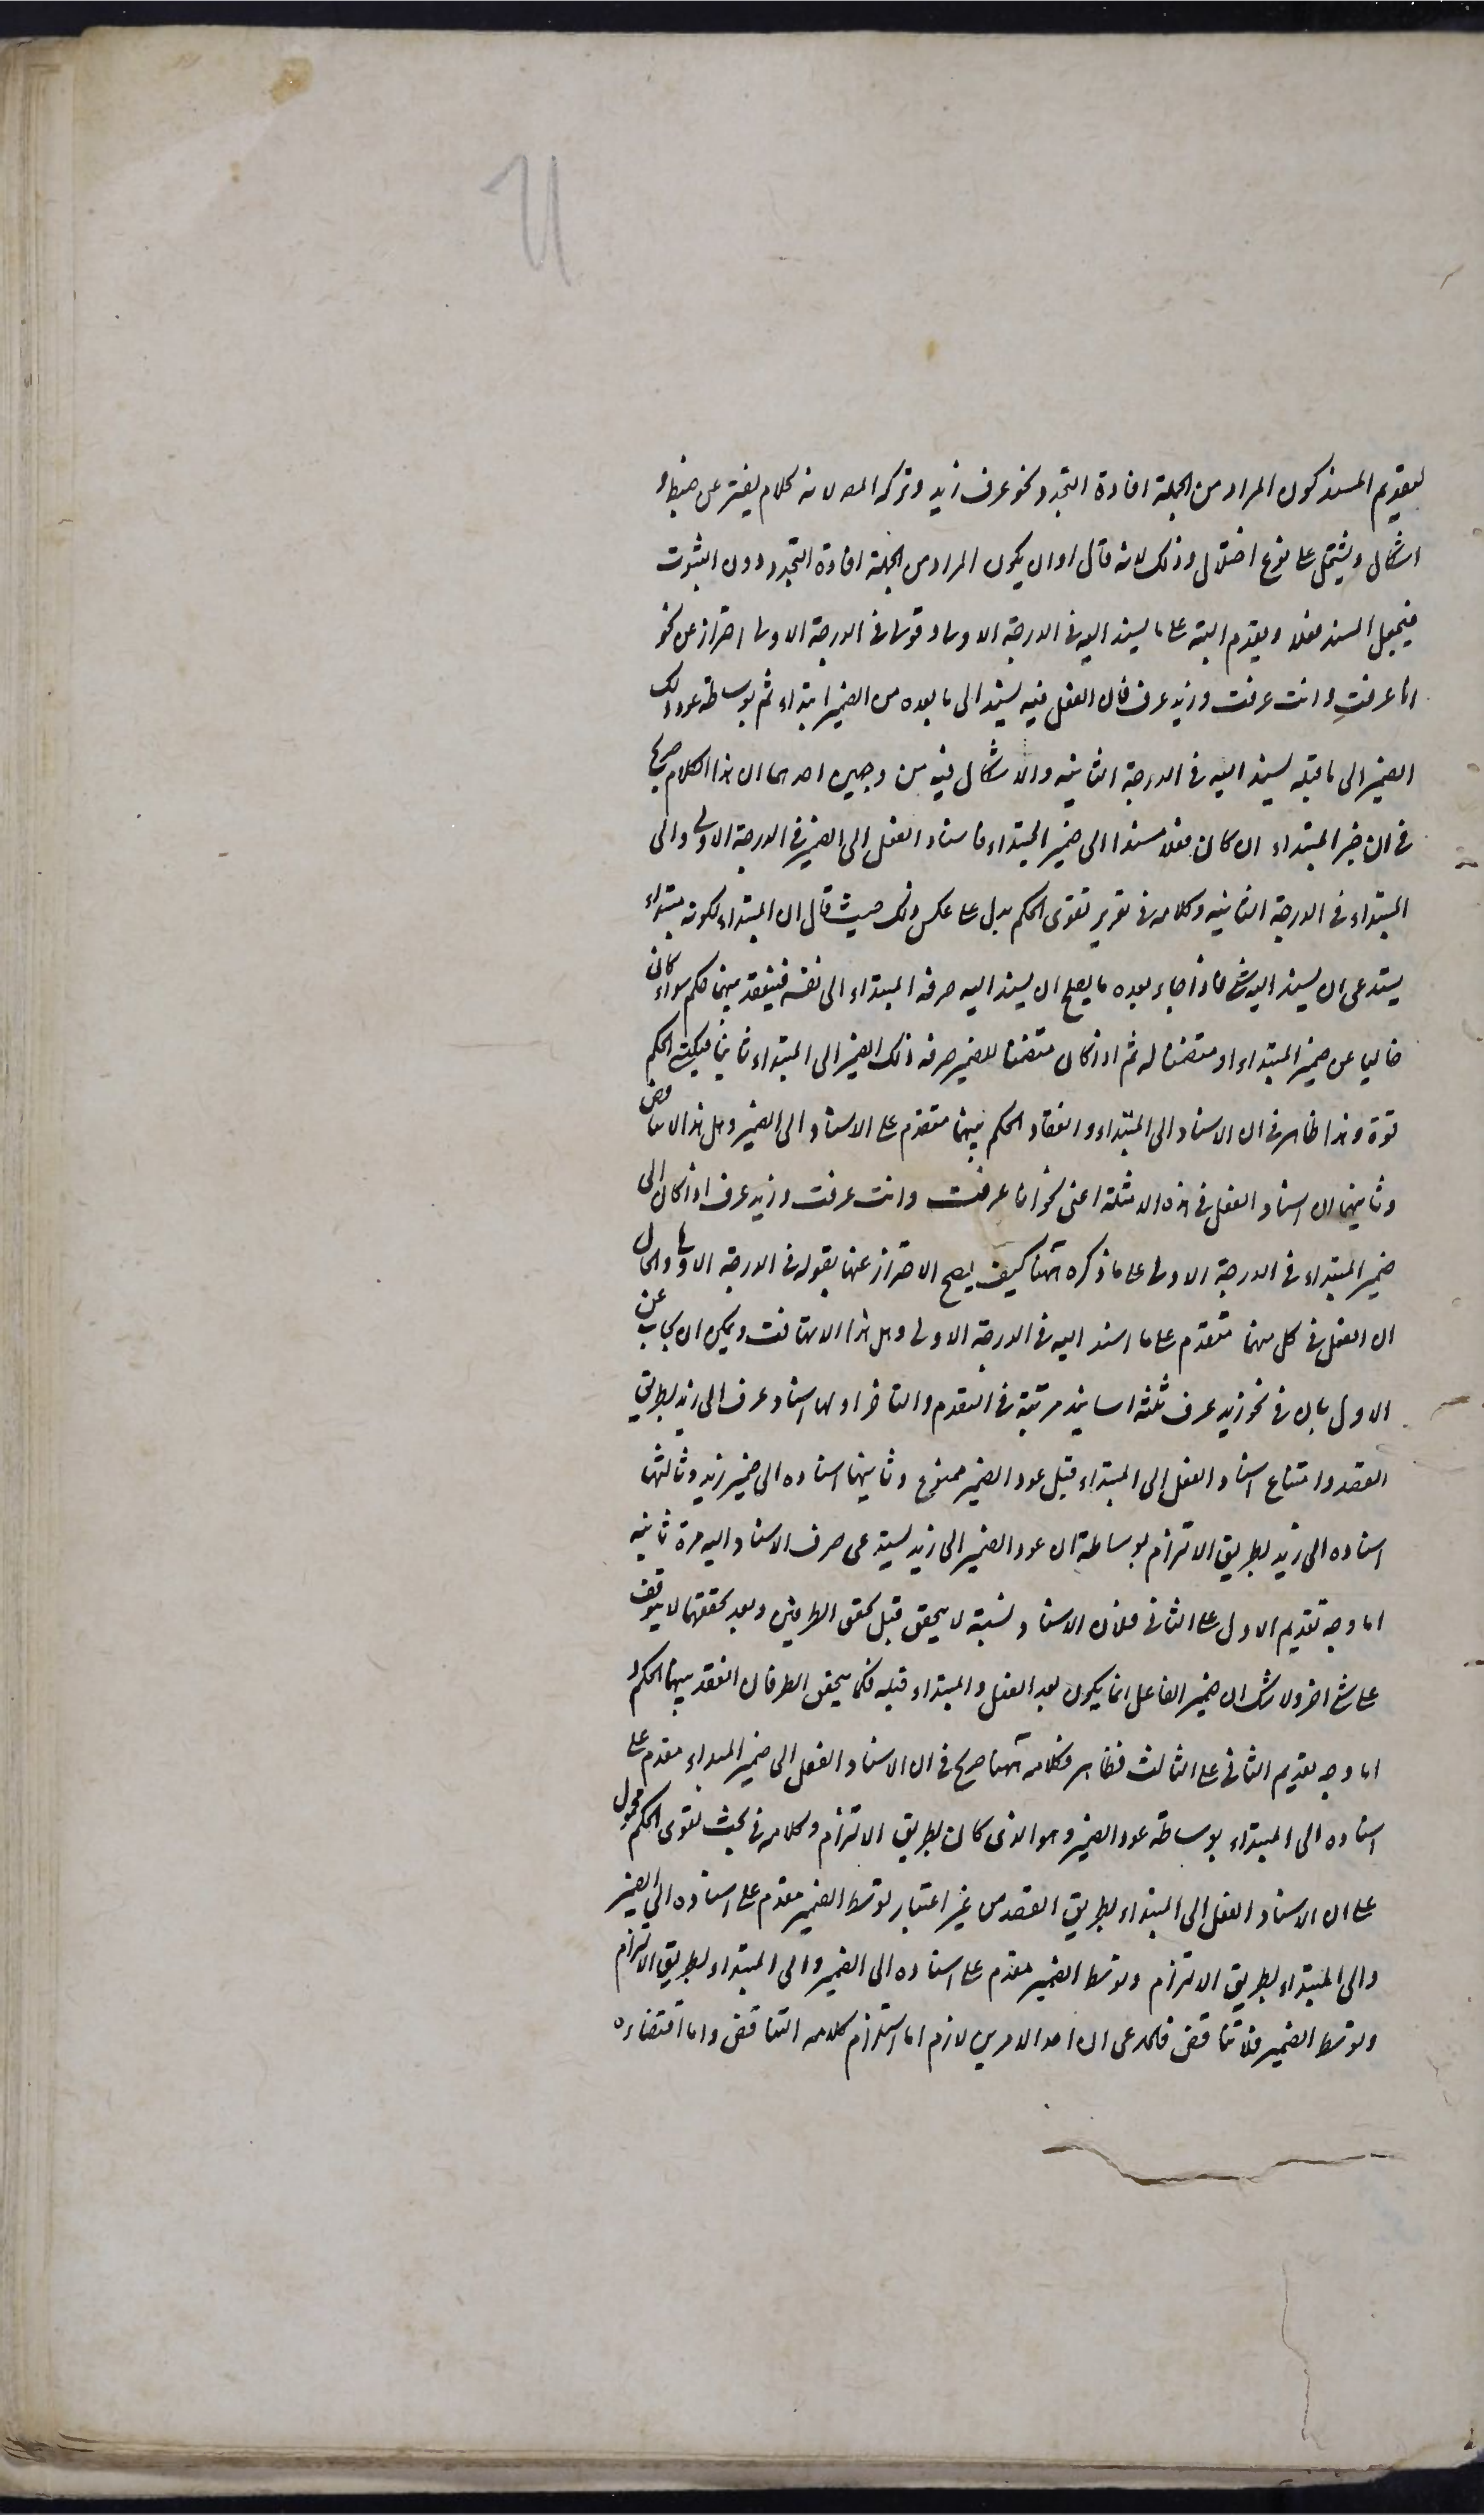 لتقديم المسند كون المراد من الجملة افادة التجدد نحو عرف زيد وتركه المص لانه كلام يفتقر عن ضبط و
اشكال ويشتمل على نوع اختلال وذلك لانه قال او ان يكون المراد من الجملة افادة التجدد دون الثبوت
فيجعل المسند فعلا ويقدم البتة على ما يسند اليه في الدرجة الاولى وقولى في الدرجة الاولى احتراز عن نحو
انا عرفت وانت عرفت وزيد عرف فان الفعل فيه يسند الى ما بعده من الضمير ابتداء ثم بوساطة عود ذلك
الضمير الى ما قبله يسند اليه في الدرجة الثانية والاشكال فيه من وجهين احدهما ان هذا الكلام صريح
في ان خبر المبتداء ان كان فعلا مسندا الى ضمير المبتداء فاسناد الفعل الى الضمير في الدرجة الاولى والى
المبتداء في الدرجة الثانية وكلامه في تقرير تقوى الحكم يدل على عكس ذلك حيث قال ان المبتداء لكونه مبتداء
يستدعى ان يسند اليه شئ فاذا جاء بعده ما يصلح ان يسند اليه صرفه المبتداء الى نفسه فينعقد بينهما حكم سواء كان
خاليا عن ضمير المبتداء او متضمنا له ثم اذا كان متضمنا للضمير صرفه ذلك الضمير الى المبتداء ثانيا فيكتسى الحكم
قوة وهذا ظاهر في ان الاسناد الى المبتداء وانعقاد الحكم بينهما متقدم على الاسناد الى الضمير وهل هذا الا تناقض
وثانيهما ان اسناد الفعل في هذه الامثلة اعنى نحو انا عرفت وانت عرفت وزيد عرف اذا كان الى
ضمير المبتداء في الدرجة الاولى على ما ذكره ههنا كيف يصح الاحتراز عنها بقوله في الدرجة الاولى والحال
ان الفعل في كل منهما متقدم على ما اسند اليه في الدرجة الاولى وهل هذا الا تهافت ويمكن ان يجاب عن
الاول بان في نحو زيد عرف ثلثة اسانيد مرتبة في التقدم والتاخر اولها اسناد عرف الى زيد بطريق
القصد وامتناع اسناد الفعل الى المبتداء قبل عود الضمير ممنوع وثانيهما اسناده الى ضمير زيد وثالثها
اسناده الى زيد بطريق الالتزام بوساطة ان عود الضمير الى زيد يستدعى صرف الاسناد اليه مرة ثانية
اما وجه تقديم الاول على الثانى فلان الاسناد نسبة لا يتحقق قبل تحقق الطرفين وبعد تحققهما لا يتوقف
على شئ اخر ولا شك ان ضمير الفاعل انما يكون بعد الفعل والمبتداء قبله فكما يتحقق الطرفان انعقد بينهما الحكم و
اما وجه تقديم الثانى على الثالث فظاهر فكلامه ههنا صريح في ان الاسناد الفعل الى ضمير المبتداء مقدم على
اسناده الى المبتداء بوساطة عود الضمير وهو الذى كان بطريق الالتزام وكلامه في بحث تقوى الحكم محمول
على ان الاسناد الفعل الى المبتداء بطريق القصد من غير اعتبار توسط الضمير مقدم على اسناده الى الضمير
والى المبتداء بطريق الالتزام وتوسط الضمير مقدم على اسناده الى الضمير والى المبتداء بطريق الالتزام
وتوسط الضمير فلا تناقض فالمدعى ان احد الامرين لازم اما استلزام كلامه التناقض واما اقتضاءه